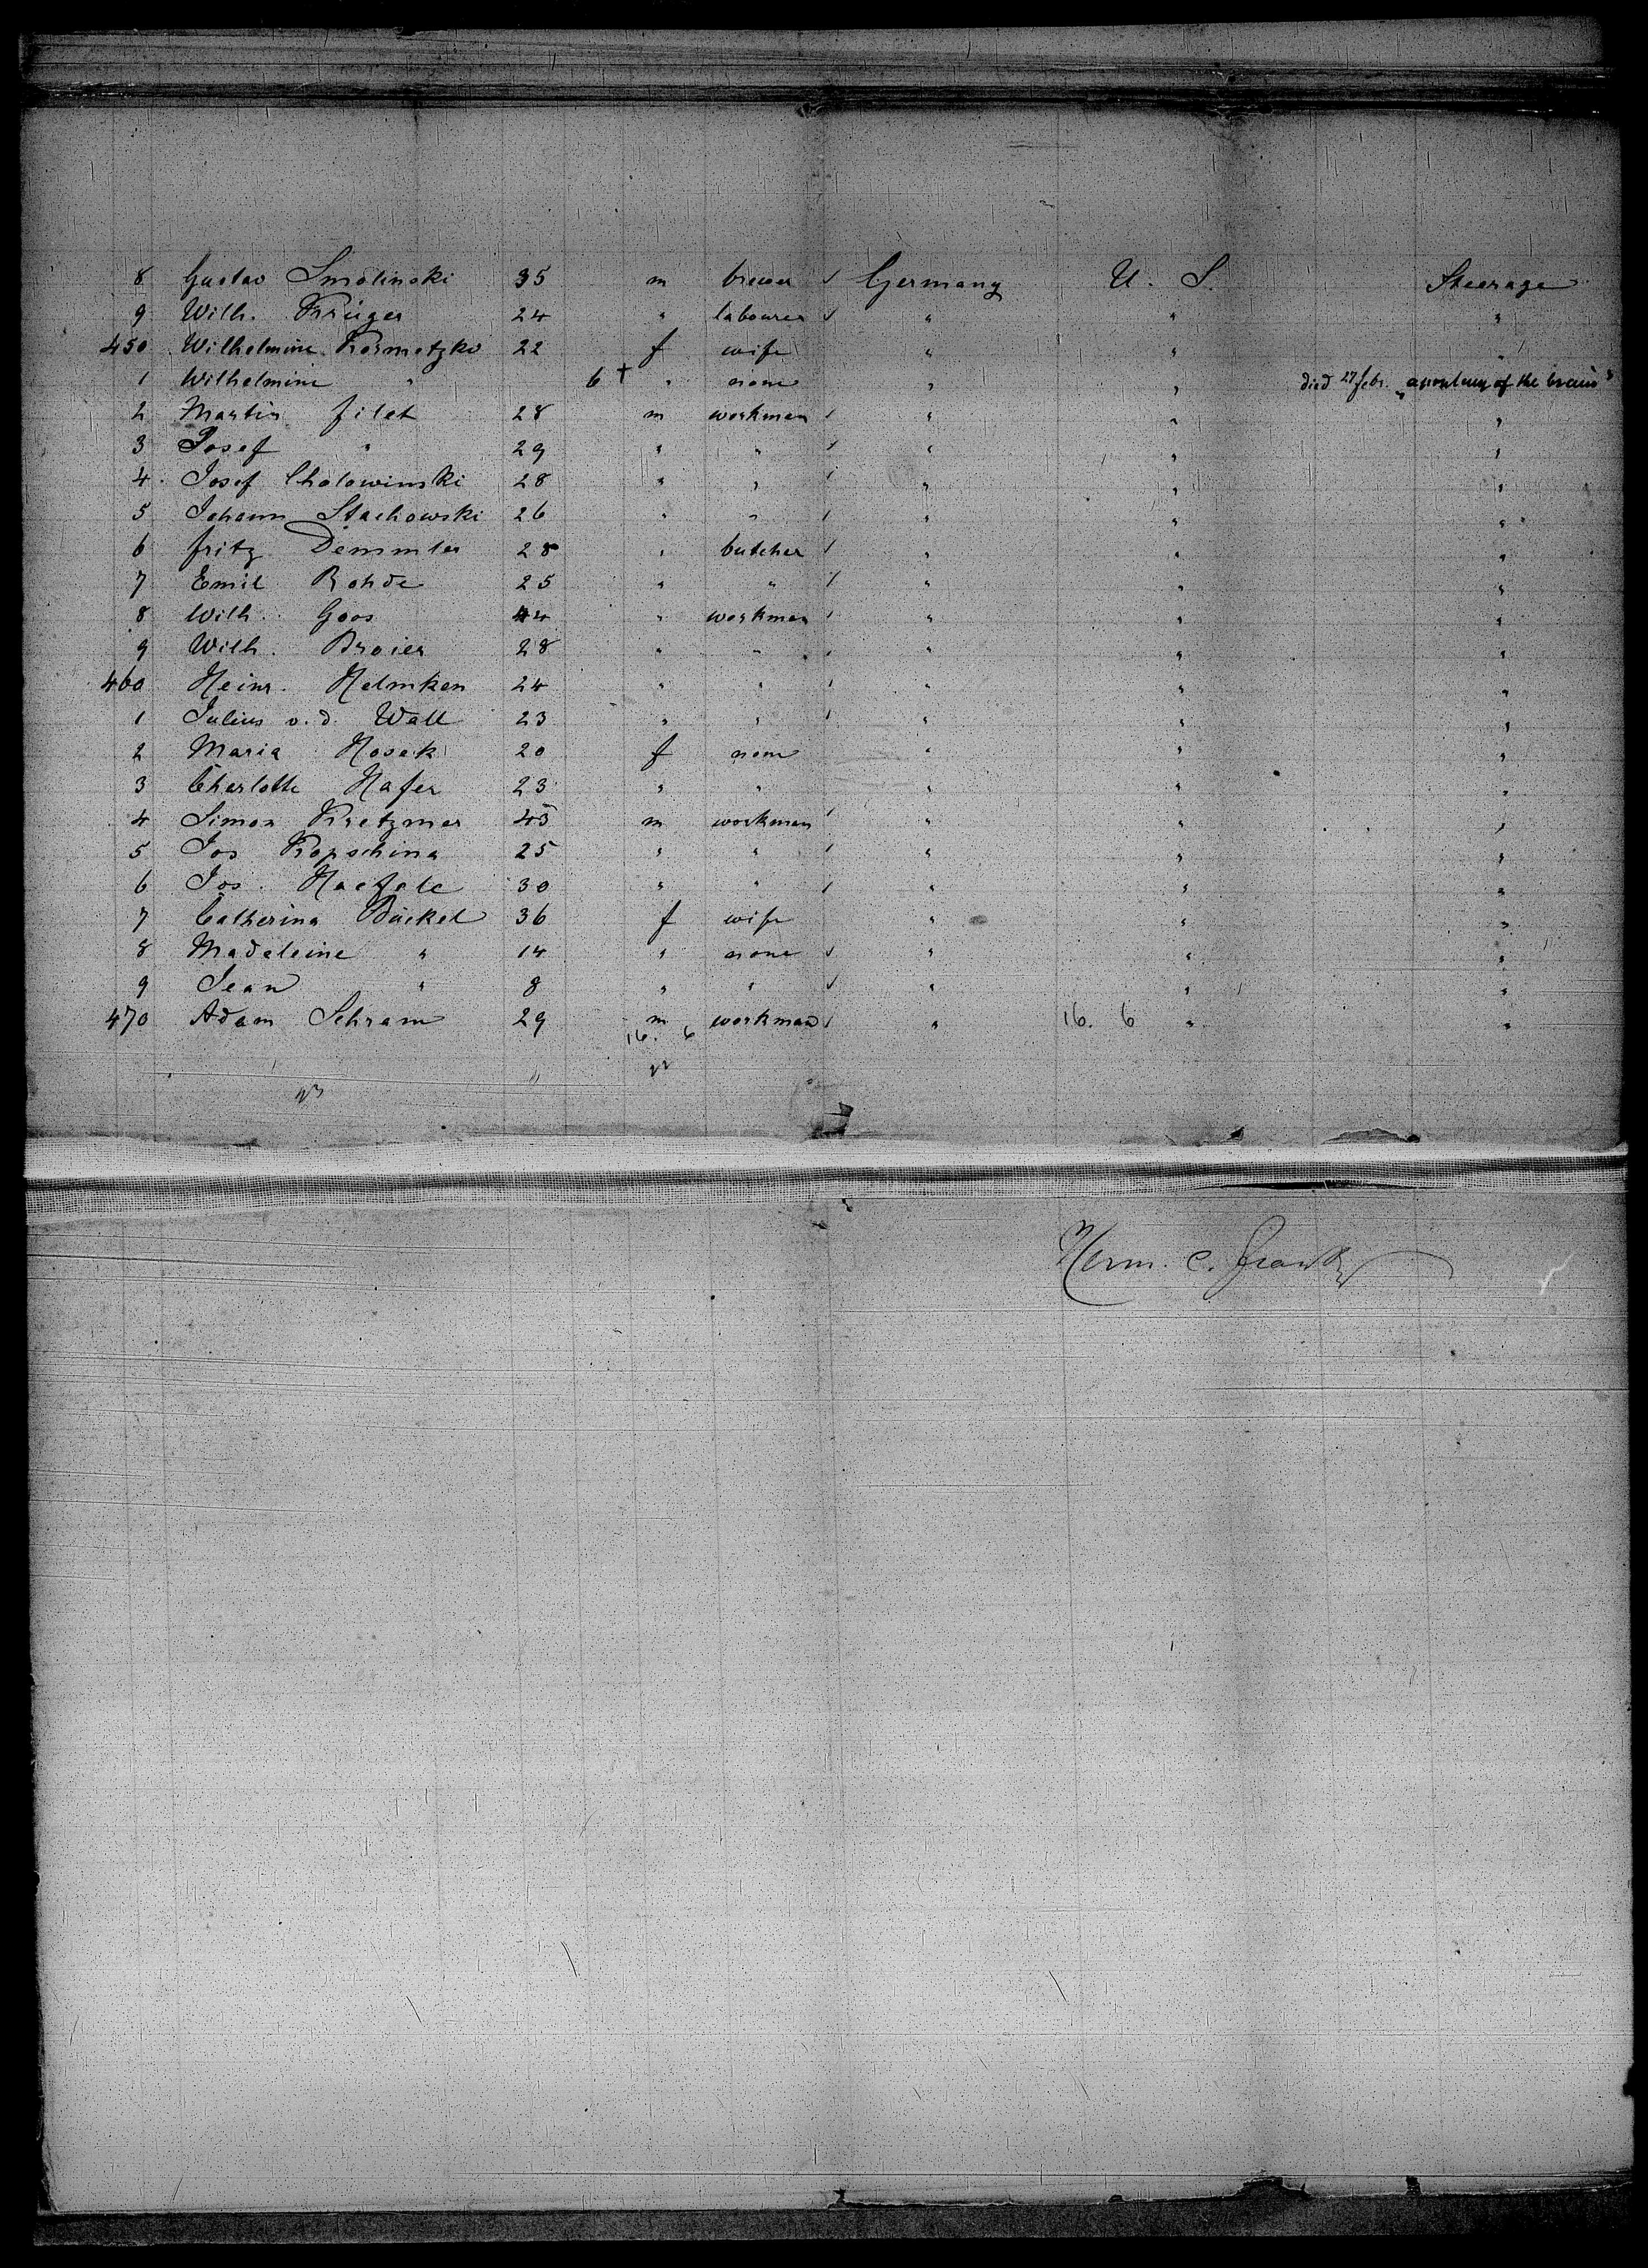 8 Gustav Smolinski 35 m brewer Germany U. S. Steerage
9 Wilh. Krüger 24 " labourer " " "
450 Wilhelmine 22 f wife " " "
1 Wilhelmine " 6 + " none " " died 27 febr. " of the brain"
2 Martin filet 28 m workman " " "
3 Josef " 29 " " " " "
4 Josef Cholowinski 28 " " " " "
5 Johann Stachowski 26 " " " " "
6 fritz Demmler 28 " butcher " " "
7 Emil Rohde 25 " " " " "
8 Wilh. Goos 44 " workman " " "
9 Wilh. Broier 28 " " " " "
460 Heinr. Helmken 24 " " " " "
1 Julius v. d. Wall 23 " " " " "
2 Maria Hosek 20 f none " " "
3 Charlotte Hafer 23 " " " " "
4 Simon Kretzmer 45 m workman " " "
5 Jos Kopschina 25 " " " " "
6 Jos. Haefele 30 " " " " "
7 Catherina Bückel 36 f wife " " "
8 Madeleine " 14 " none " " "
9 Jean " 8 " " " " "
470 Adam Schram 29 m workman " 16. 6 " "
16. 6
Herm. C.